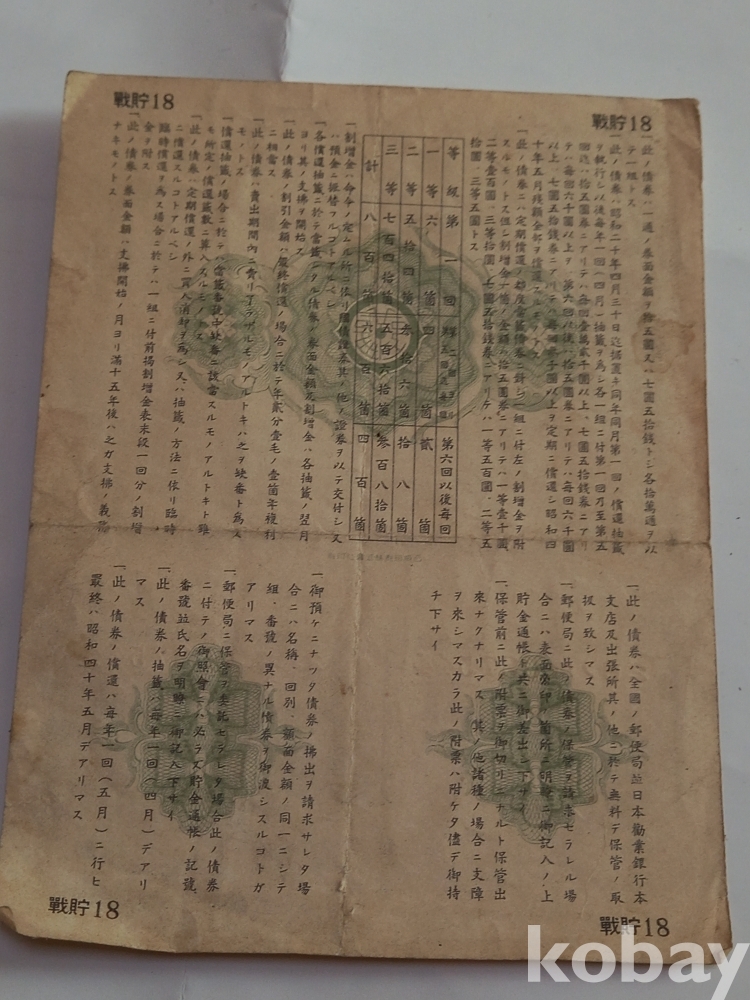 戰貯18
戰貯18
一、此ノ債券ハ一通ノ券面金額ヲ拾五圓又ハ七圓五拾錢トシ各拾萬通ヲ以
テ一組トス
一、此ノ債券ハ昭和二十年四月三十日迄据置キ同年同月第一回ノ償還抽籤
ヲ執行シ以後每年一回(四月)抽籤ヲ爲シ各一組ニ付第一回乃至第五
回迄ハ拾五圓券ニアリテハ每回壹萬貳千圓以上、七圓五拾錢券ニアリ
テハ每回六千圓以上ヲ、第六回以後ハ拾五圓券ニアリテハ每回六千圓
以上、七圓五拾錢券ニアリテハ每回參千圓以上ヲ定期ニ償還シ昭和四
十年五月殘額全部ヲ償還スルモノトス
一、此ノ債券ニハ定期償還ノ都度當籤債券ニ對シ一組ニ付左ノ割增金ヲ附
スルモノトス但シ割增金一箇ノ金額ハ拾五圓券ニアリテハ一等壹千圓、
二等壹百圓、三等拾圓、七圓五拾錢券ニアリテハ一等五百圓、二等五
拾圓、三等五圓トス
等級 第一回 第六回以後每回
一等 六箇 四箇 貳箇
二等 五拾四箇 參拾六箇 拾八箇
三等 七百四拾箇 五百六拾箇 參百八拾箇
計 八百箇 六百箇 四百箇
一、割增金ハ命令ノ定ムル所ニ依リ國債證券其ノ他ノ證券ヲ以テ交付シ又
ハ預金ニ振替フルコトアルベシ
一、各償還抽籤ニ於テ當籤シタル債券ノ券面金額及割增金ハ各抽籤ノ翌月
ヨリ其ノ支拂ヲ開始ス
一、此ノ債券ノ割引金額ハ最終償還ノ場合ニ於テ年貳分壹毛ノ壹箇年複利
ニ相當ス
一、此ノ債券ハ賣出期間內ニ賣リ了ラザルモノアルトキハ之ヲ缺番ト爲ス
モノトス
一、償還抽籤ノ場合ニ於テハ當籤番號中缺番ニ該當スルモノアルトキト雖
モ所定ノ償還籤數ニ算入スルモノトス
一、此ノ債券ハ定期償還ノ外ニ買入消却ヲ爲シ又ハ抽籤ノ方法ニ依リ臨時
ニ償還スルコトアルベシ
臨時償還ヲ爲ス場合ニ於テハ一組ニ付前揭割增金表末段一回分ノ割增
金ヲ附ス
一、此ノ債券ノ券面金額ハ支拂開始ノ月ヨリ滿十五年後ハ之ガ支拂ノ義務
ナキモノトス
一、此ノ債券ハ全國ノ郵便局並日本勸業銀行本
支店及出張所其ノ他ニ於テ無料デ保管ノ取
扱ヲ致シマス
一、郵便局ニ此ノ債券ノ保管ヲ請求セラレル場
合ニハ表面㊞印ノ箇所ニ明瞭ニ御記入ノ上
貯金通帳ト共ニ御差出シ下サイ
一、保管前ニ此ノ附票ヲ御切リニナルト保管出
來ナクナリマス、其ノ他諸種ノ場合ニ支障
ヲ來シマスカラ此ノ附票ハ附ケタ儘デ御持
チ下サイ
一、御預ケニナツタ債券ノ拂出ヲ請求サレタ場
合ニハ名稱、回別、額面金額ノ同一ニシテ
組、番號ノ異ナル債券ヲ御渡シスルコトガ
アリマス
一、郵便局ニ保管ヲ委託セラレタ場合此ノ債券
ニ付テノ御照會ニハ必ラズ貯金通帳ノ記號
番號竝氏名ヲ明瞭ニ御記入下サイ
一、此ノ債券ノ抽籤ハ每年一回(四月)デアリ
マス
一、此ノ債券ノ償還ハ每年一回(五月)ニ行ヒ
最終ハ昭和四十年五月デアリマス
戰貯18
戰貯18
kobay